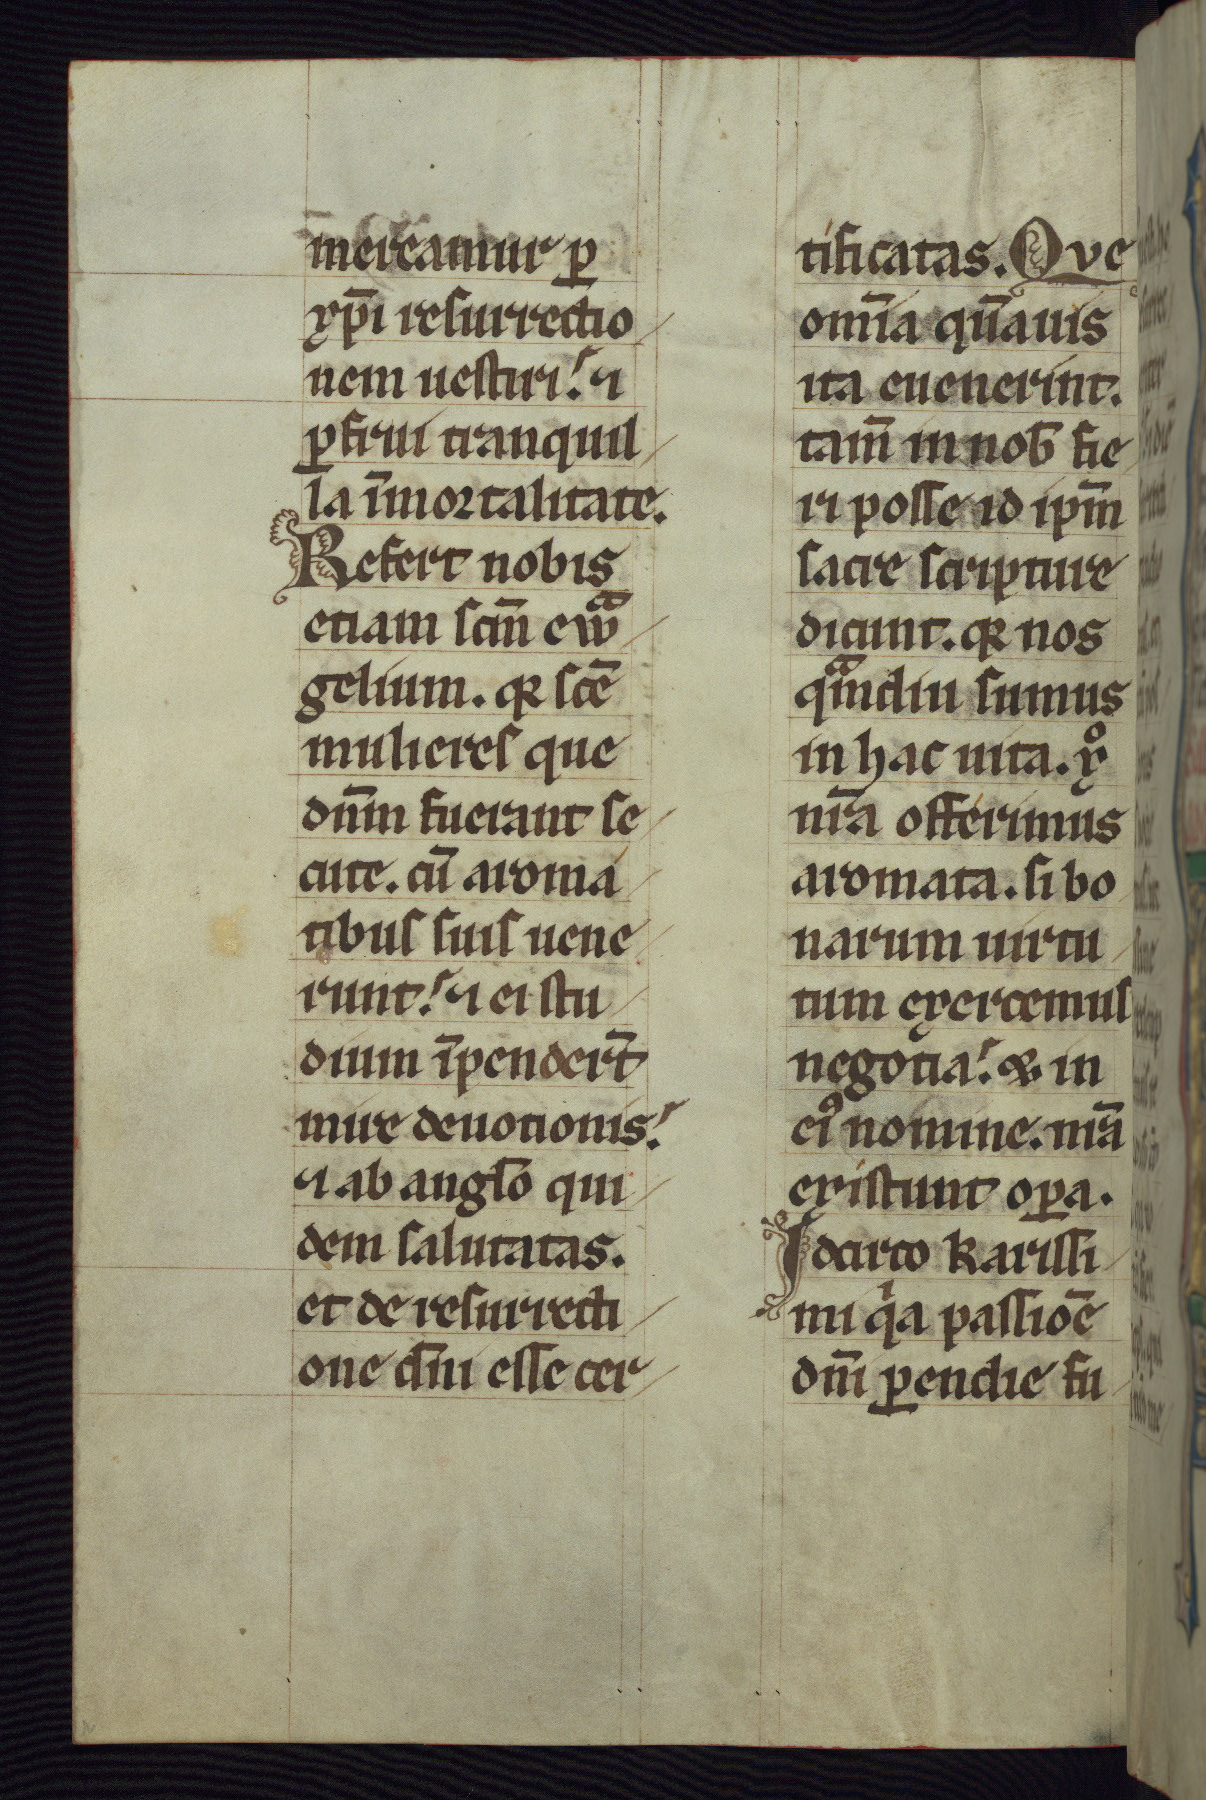 mereamur ꝑ
xp̄i resurrectio
nem uestiri. ⁊
ꝑfrui tranquil
la īmortalitate.
Refert nobis
etiam scm̄ ewͣ
gelium. qꝛ scē
mulieres que
dn̄m fuerant se
cute. cū aroma
tibus suis uene
runt. ⁊ ei stu
dium īpendert̄
mire deuotionis.
⁊ ab angl̄o qui
dem salutatas.
et de resurrecti
one dn̄i esse cer
tificatas. Que
om̄ia qn̄auis
ita euenerint.
tam̄ in nob̄ fie
ri posse id ipm̄
sacre scripture
dicunt. qꝛ nos
qͣmdiu sumus
in hac uita. xͦ
nr̄a offerimus
aromata. si bo
narum uirtu
tum exercemus
negotia. & in
eiꝰ nomine. nr̄a
existunt oꝑa.
Idcirco Karissi
mi qͥa passiōe
dn̄i ꝑendie fu